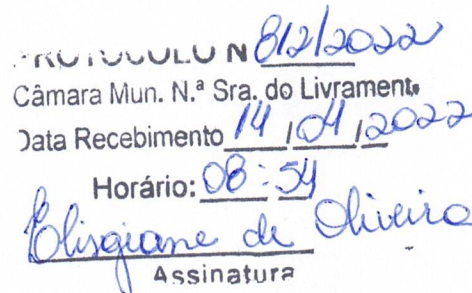 PROTOCOLO N 812/2022
Câmara Mun. N.ª Sra. do Livramento
Data Recebimento 14/04/2022
Horário: 08:54
Elisgiane de Oliveira
Assinatura